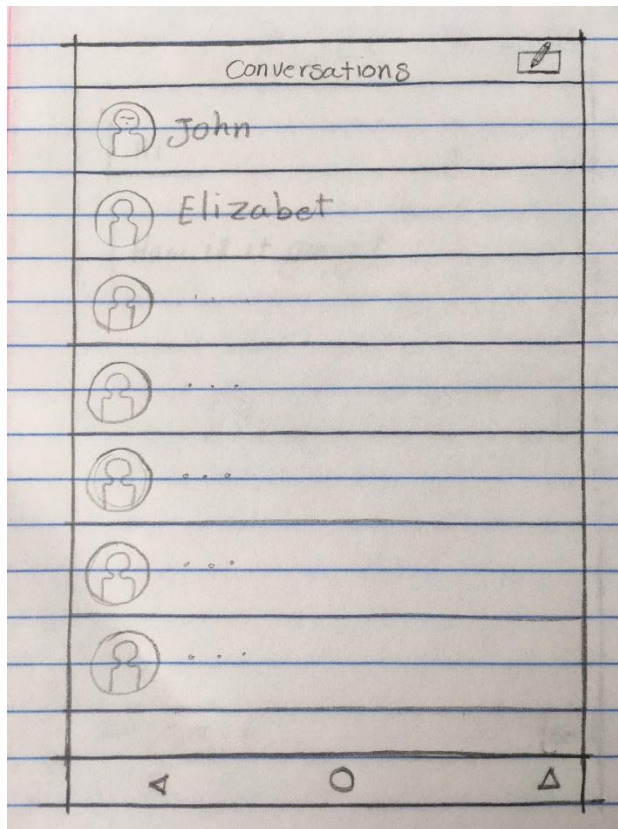 Conversations
John
Elizabet
...
...
...
...
...